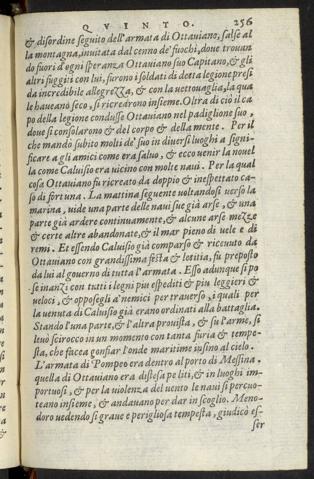 QVINTO. 256
& disordine seguito dell'armata di Ottauiano, salse al
la montagna, inuitata dal cenno de' fuochi, doue trouan
do fuori d'ogni speranza Ottauiano suo Capitano, & gli
altri fuggiti con lui, furono i soldati di detta legione presi
da incredibile allegrezza, & con la uettouaglia, la qua
le haueano seco, si ricrearono insieme. Oltra di ciò il ca
po della legione condusse Ottauiano nel padiglione suo,
doue si consolarono & del corpo & della mente. Per il
che mando subito molti de' suo in diuersi luoghi a signi-
ficare a gli amici come era saluo, & ecco uenir la nouel
la come Caluisio era uicino con molte naui. Per la qual
cosa Ottauiano fu ricreato da doppio & inespettato ca-
so di fortuna. La mattina seguente uoltandosi uerso la
marina, uide una parte delle naui sue già arse, & una
parte già ardere continuamente, & alcune arse mezze
& certe altre abandonate, & il mar pieno di uele e di
remi. Et essendo Caluisio già comparso & riceuuto da
Ottauiano con grandissima festa & letitia, fu preposto
da lui al gouerno di tutta l'armata. Esso adunque si po
se inanzi con tutti i legni piu espediti & piu leggieri &
ueloci, & opposegli a' nemici per trauerso, i quali per
la uenuta di Caluisio già erano ordinati alla battaglia.
Stando l'una parte, & l'altra prouista, & su l'arme, si
leuò scirocco in un momento con tanta furia & tempe-
sta, che facea gonfiar l'onde maritime insino al cielo.
L'armata di Pompeo era dentro al porto di Messina.
quella di Ottauiano era distesa pe liti, & in luoghi im-
portuosi, & per la uiolenza del uento le naui si percuo-
teano insieme, & andauano per dar in scoglio. Meno-
doro uedendo si graue e perigliosa tempesta, giudicò es-
ser